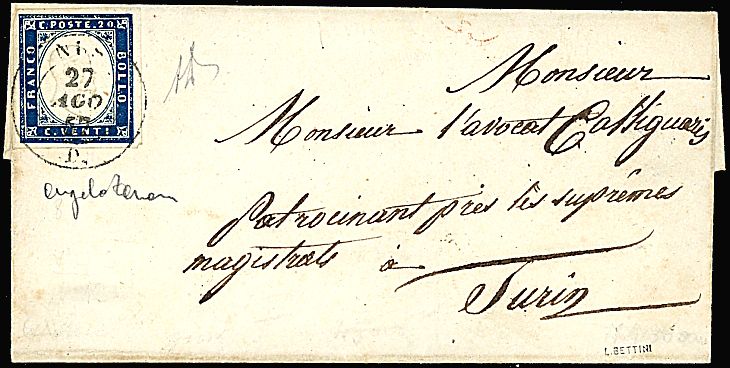 C. POSTE. 20
FRANCO
BOLLO
C. VENTI
27
AGO
57
Monsieur
Monsieur l'avocat
Patrocinant près les suprêmes
magistrats à
Turin
L. BETTINI